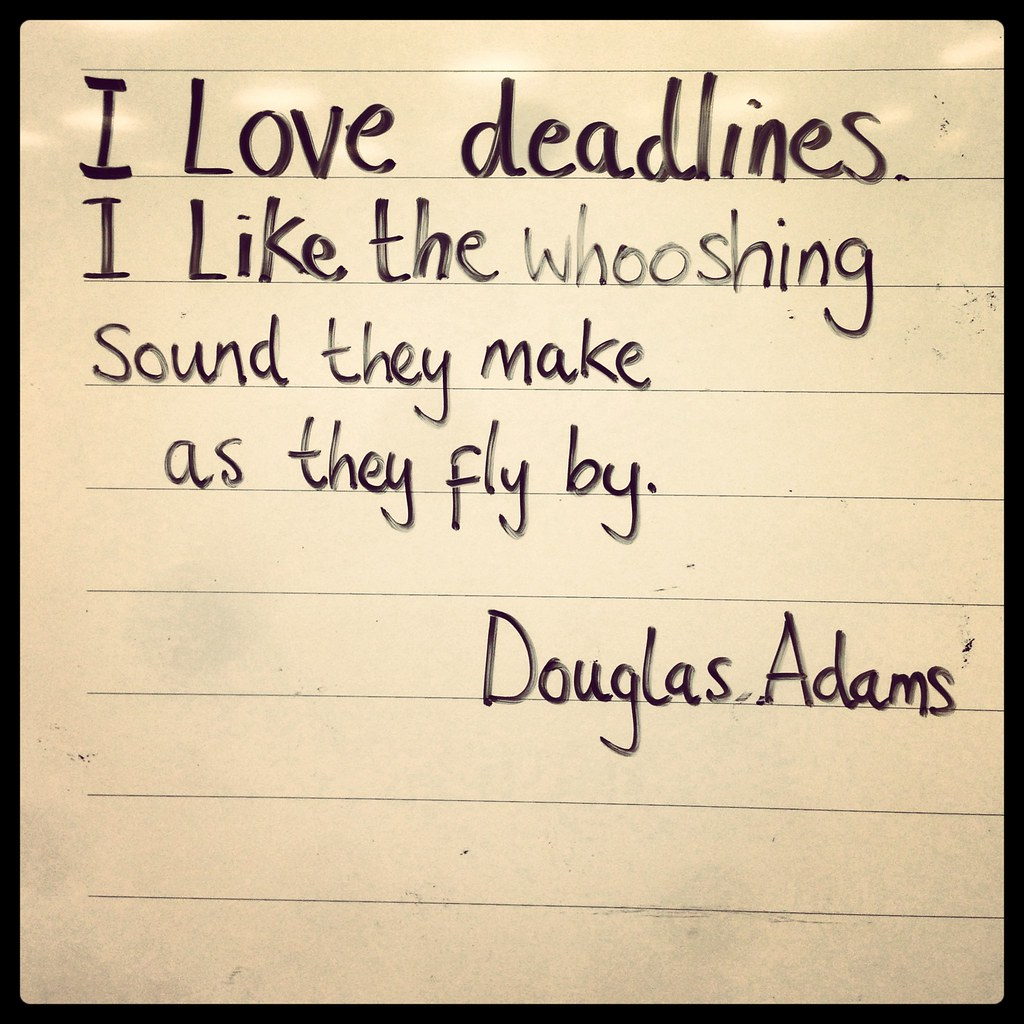 I Love deadlines.
I Like the whooshing
Sound they make
as they fly by.
Douglas Adams